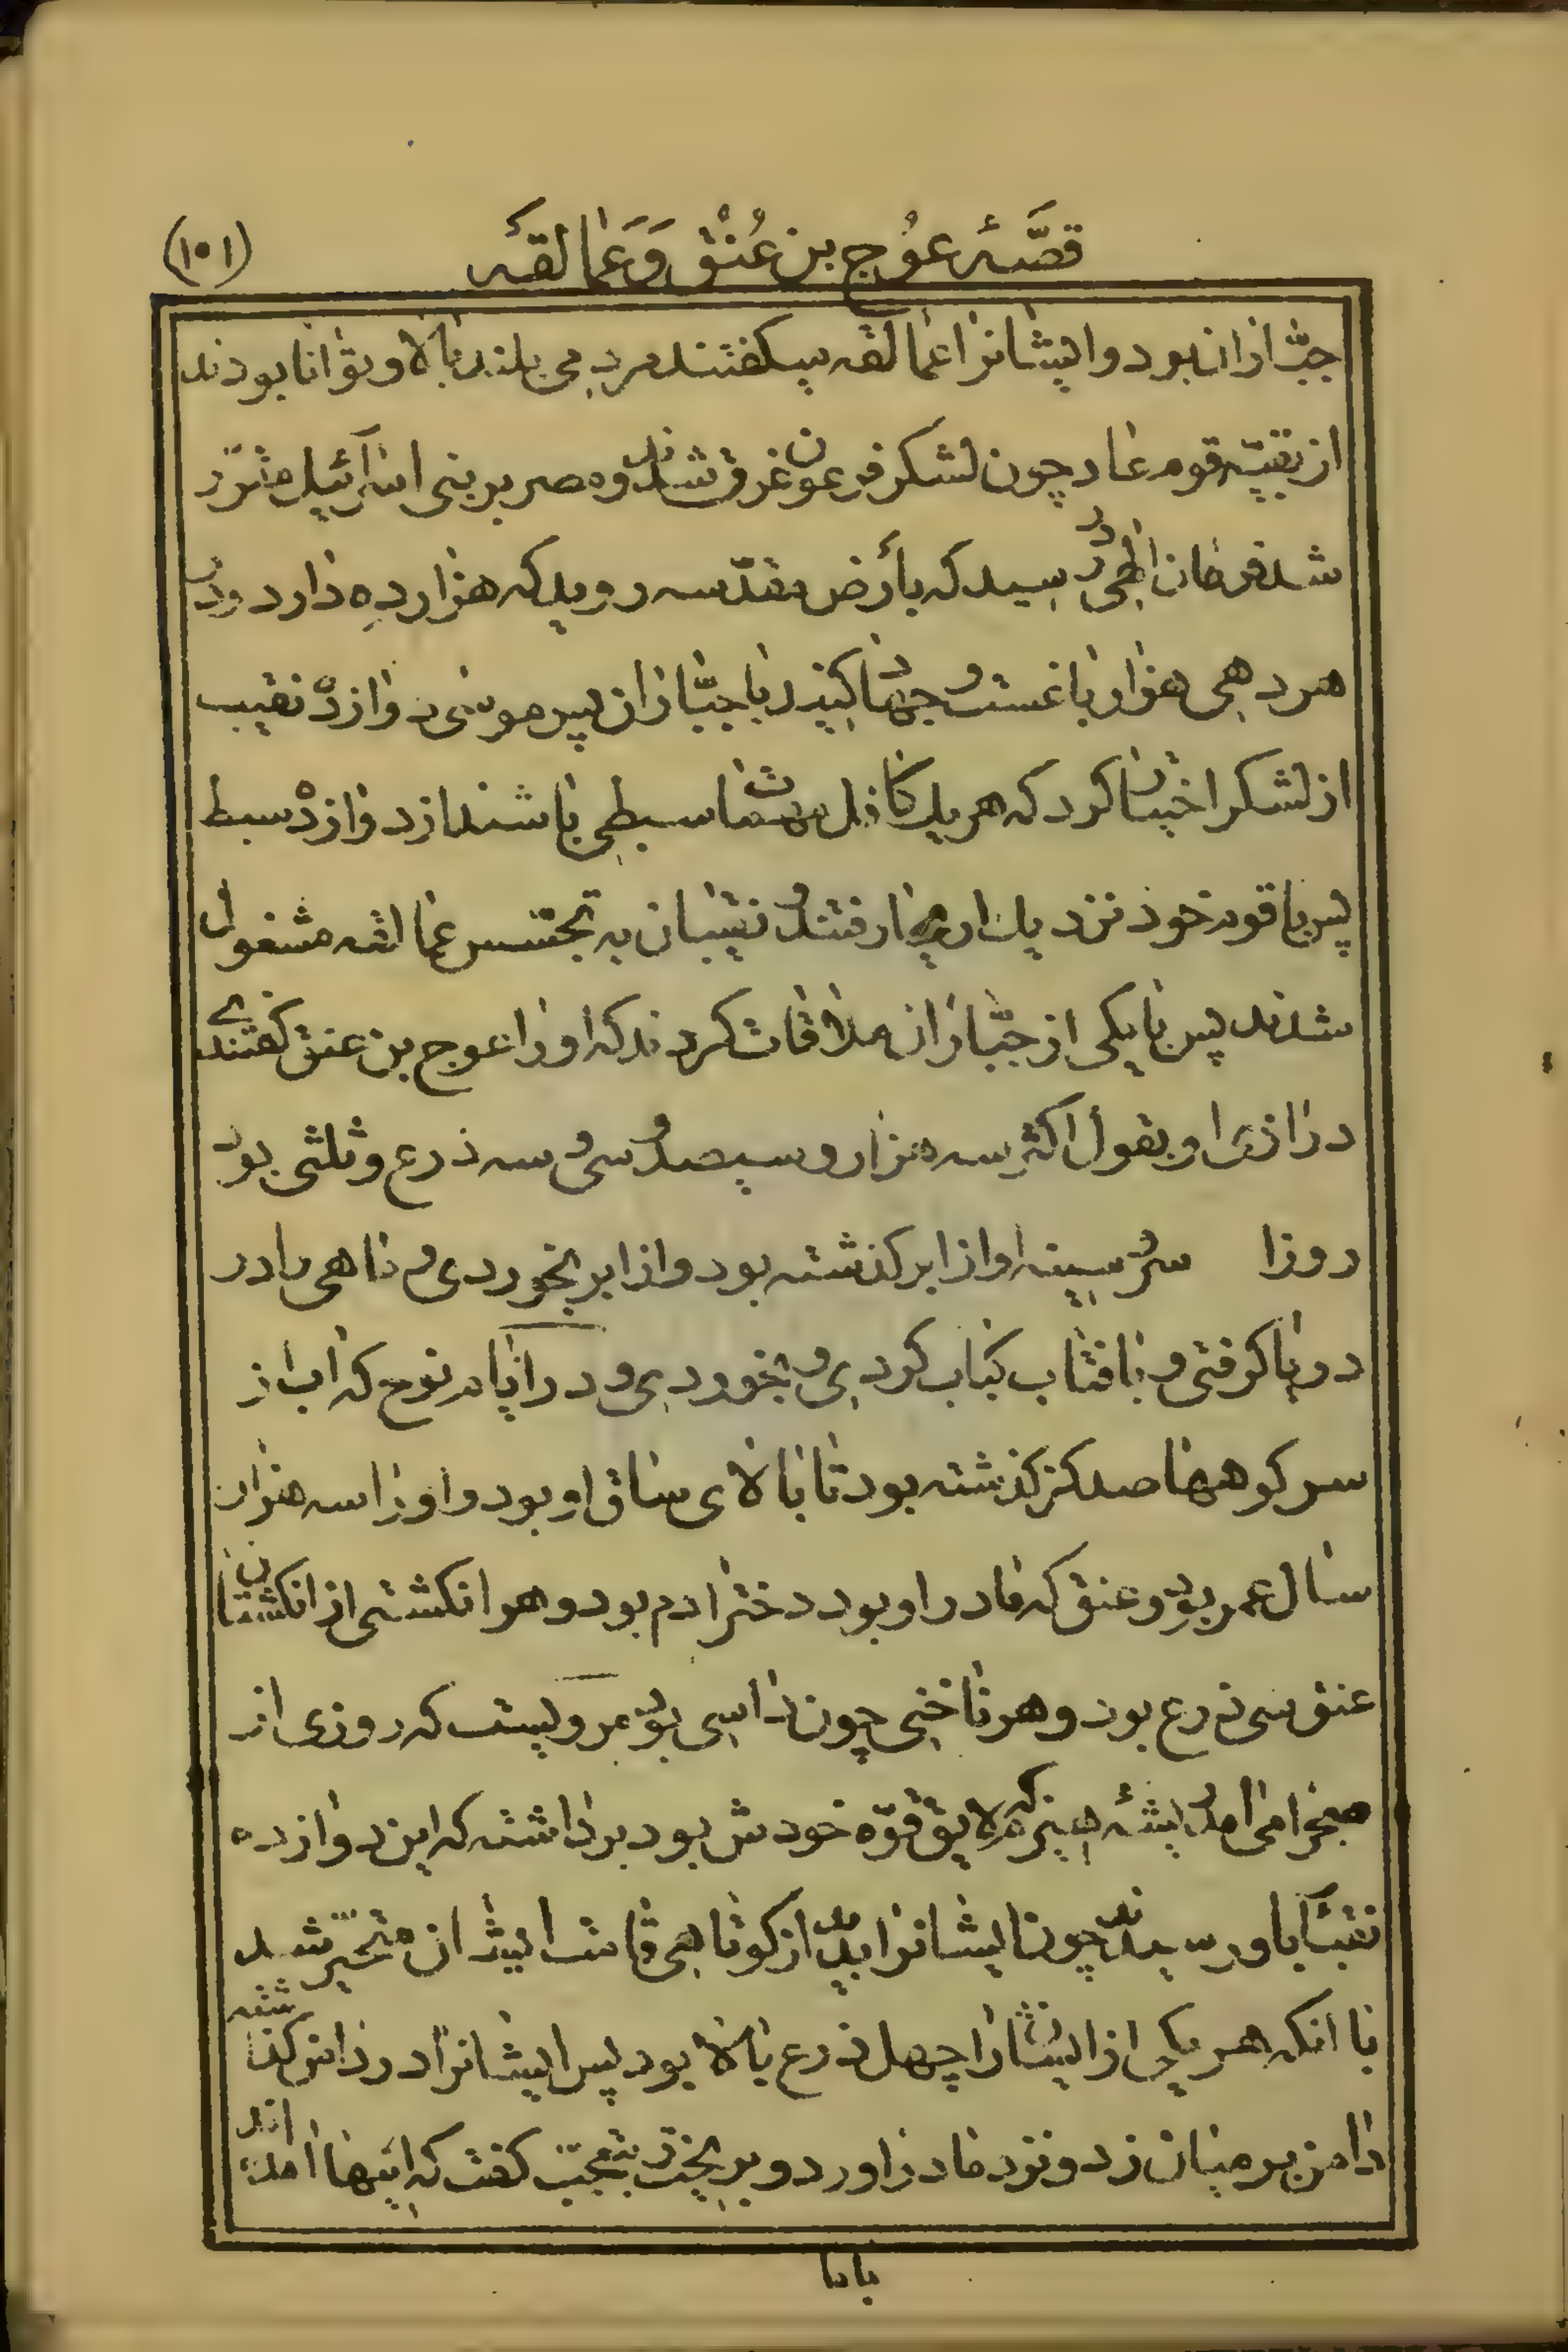 قصّهٔ عوُج بن عُنُق وَ عَمالقهٔ
(۱۰۱)
جبّاران بود و ایشانرا عمالقه میکفتند مردمی بلند بالا و توانا بودند
از بقیّه قوم عاد چون لشکر فرعون غرق شدند و مصر بر بنی اسرآئیل مقرّر
شد فرمان الهی در رسید که بأرض مقدّسه روید که هزار ده دارد و در
هر دهی هزار باغست و جهاد کنید با جبّاران پس موسی دوازده نقیب
از لشکر اختیار کرد که هر یک کافل مهمات سبطی باشند از دوازده سبط
پس با قوم خود نزدیک اریحا رفتند و نقیبان به تجسّس عمالقه مشغول
شدند پس با یکی از جبّاران ملاقات کردند که او را عوج بن عنق کفتندی
درازی او بقول اکثر سه هزار و سیصد و سی و سه ذرع و ثلثی بود
روزا سر و سینه او از ابر کذشته بود و از ابر بخوردی و ماهی را در
دریا کرفتی و بافتاب کباب کردی و بخوردی و در ایام نوح که اب از
سر کوهها صد کز کذشته بود تا بالای ساق او بود و او را سه هزار
سال عمر بود و عنق که مادر او بود دختر ادم بود و هر انکشتی از انکشتان
عنق سی ذرع بود و هر ناخنی چون داسی بود مرویست که روزی از
صحرا می امد و پشتهٔ هیزم که لایق قوّه خودش بود برداشته که این دوازده
نقبآ باو رسیدند چون ایشانرا بدید از کوتاهی قامت ایشان متحیّر شد
با انکه هر یکی از ایشان را چهل ذرع بالا بود پس ایشانرا در دامن کذاشته
دامن بر میان زد و نزد مادر اورد و بریخت و بتعجّب کفت که اینها امده اند
باما